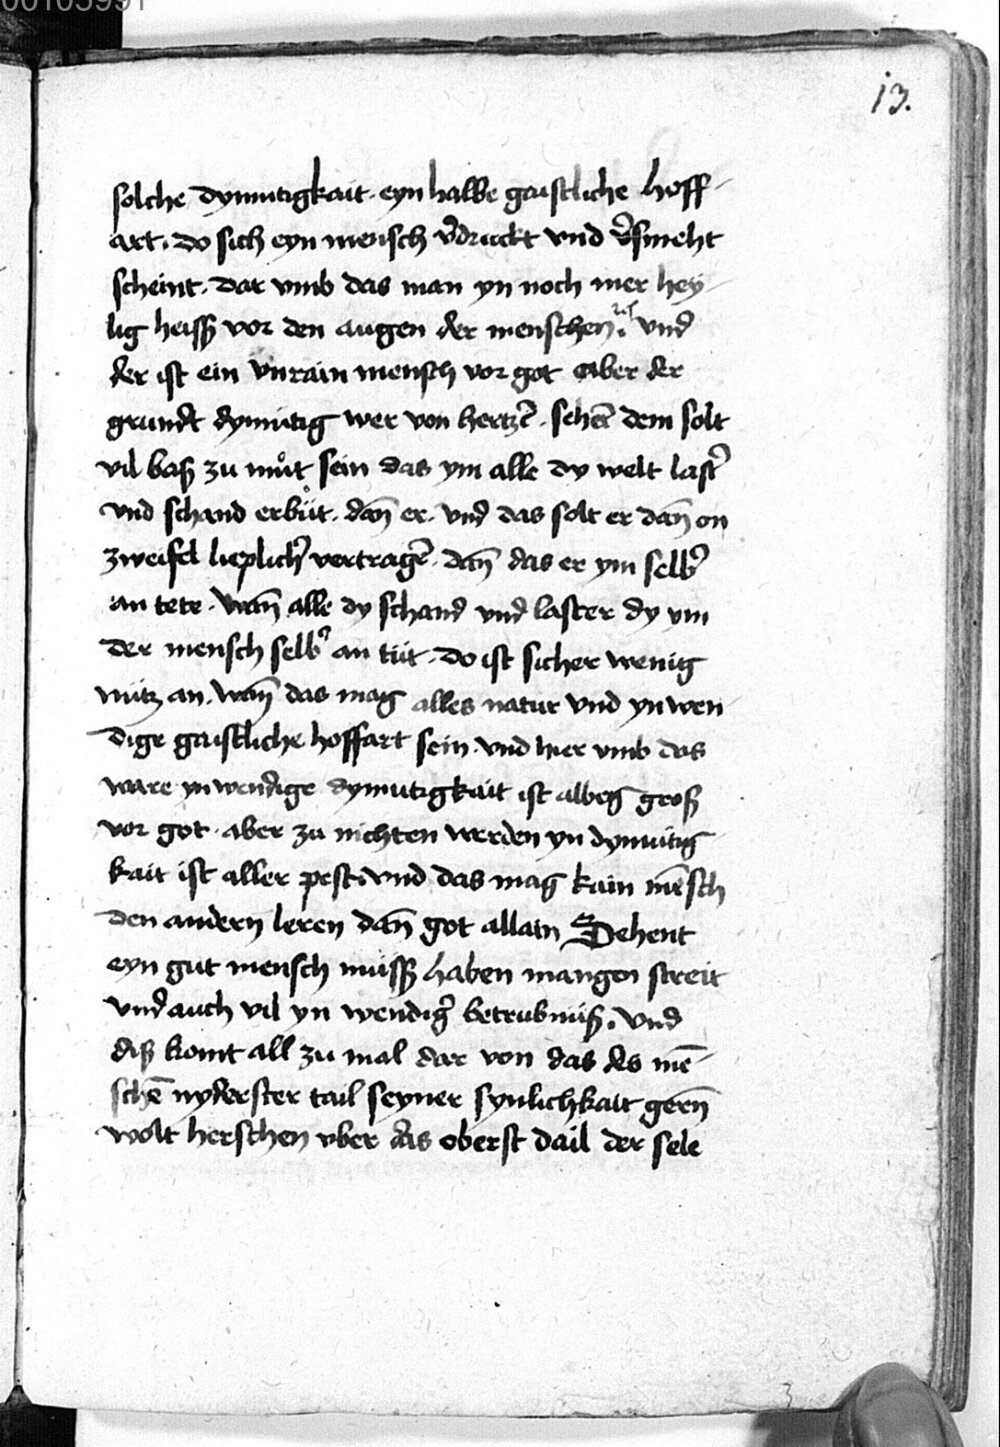 00103991
13.
solche dymutigkait · eyn halbe gaistliche hoff-
art · do sich eyn mensch v̉druckt vnd v̉smeht
scheint · dar vmb das man yn noch mer hey-
lig heiss vor den augen der menschen · vnd
der ist ein vnrain mensch vor got aber der
grundt dymutig wer von hertzē · sehēt dem solt
vil bas zu můt sein das ym alle dy welt last̉
vnd schand erbüt · dañ er · vnd das solt er dañ on
zweifel lieplich̉ vertragē · dañ das er ym selb̉
an tete · wañ alle dy schand vnd laster dy ym
der mensch selb̉ an tüt · do ist sicher wenig
nütz an · wañ das mag alles natur vnd ynwen-
dige gaistliche hoffart sein · vnd hier vmb das
ware ynwendige dymutigkait ist albeg gros
vor got · aber zu nichten werden yn dymütig-
kait ist aller pest · vnd das mag kain mēsch
den andern leren dañ got allain Sehent
eyn gut mensch müss haben mangen streit
vnd auch vil yn wendig̉ betrubnüß · vnd
diß komt all zu mal dar von das des mē-
schē nyderster tail seyner synlichkait gern̄
wolt herschen vber das oberst dail der sele
3